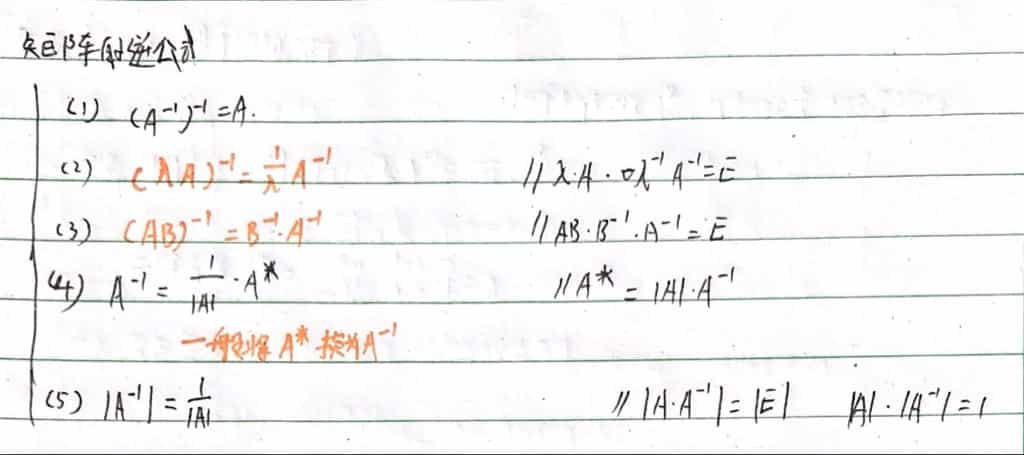 矩阵的逆公式
(1) (A⁻¹)⁻¹=A.
(2) (λA)⁻¹=1/λ A⁻¹ // λ·A·λ⁻¹A⁻¹=E
(3) (AB)⁻¹=B⁻¹·A⁻¹ // AB·B⁻¹·A⁻¹=E
(4) A⁻¹=1/|A|·A* // A*=|A|·A⁻¹
一般将A*换为A⁻¹
(5) |A⁻¹|=1/|A| // |A·A⁻¹|=|E| |A|·|A⁻¹|=1